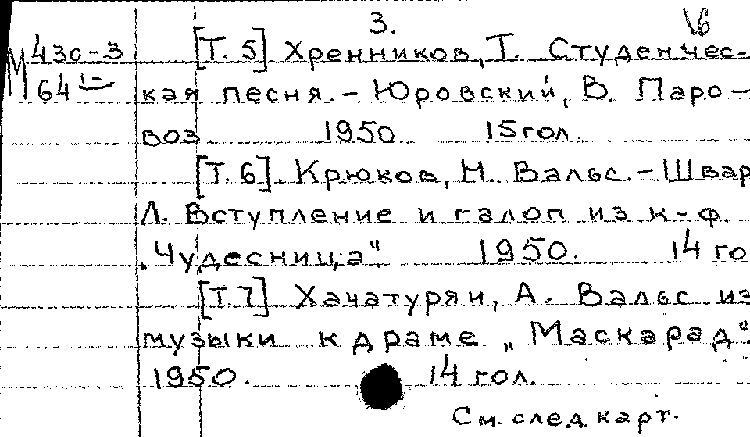 3. 16
М 430-3 [Т. 5] Хренников, Т. Студенчес-
64 кая песня. - Юровский, В. Паро-
воз 1950 15 гол.
[Т. 6]. Крюков, Н. Вальс. - Швар
Л. Вступление и галоп из к-ф.
„Чудесница“ 1950. 14 го
[Т. 7] Хачатурян, А. Вальс из
музыки к драме „Маскарад“
1950. 14 гол.
См. след. карт.